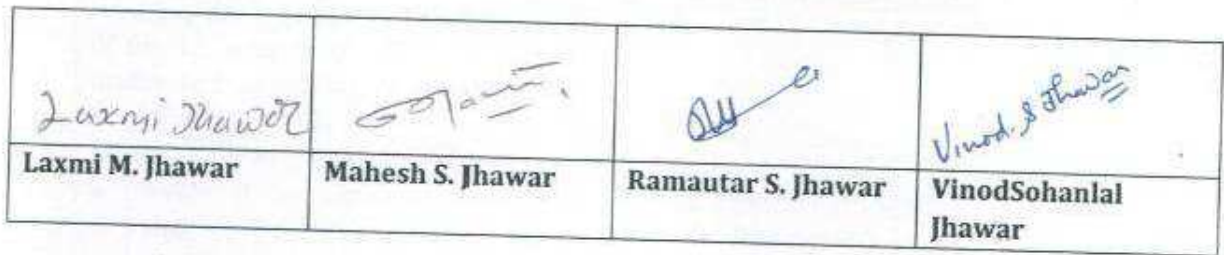 Laxmi Jhawar
Vinod. S Jhawar
Laxmi M. Jhawar
Mahesh S. Jhawar
Ramautar S. Jhawar
VinodSohanlal
Jhawar